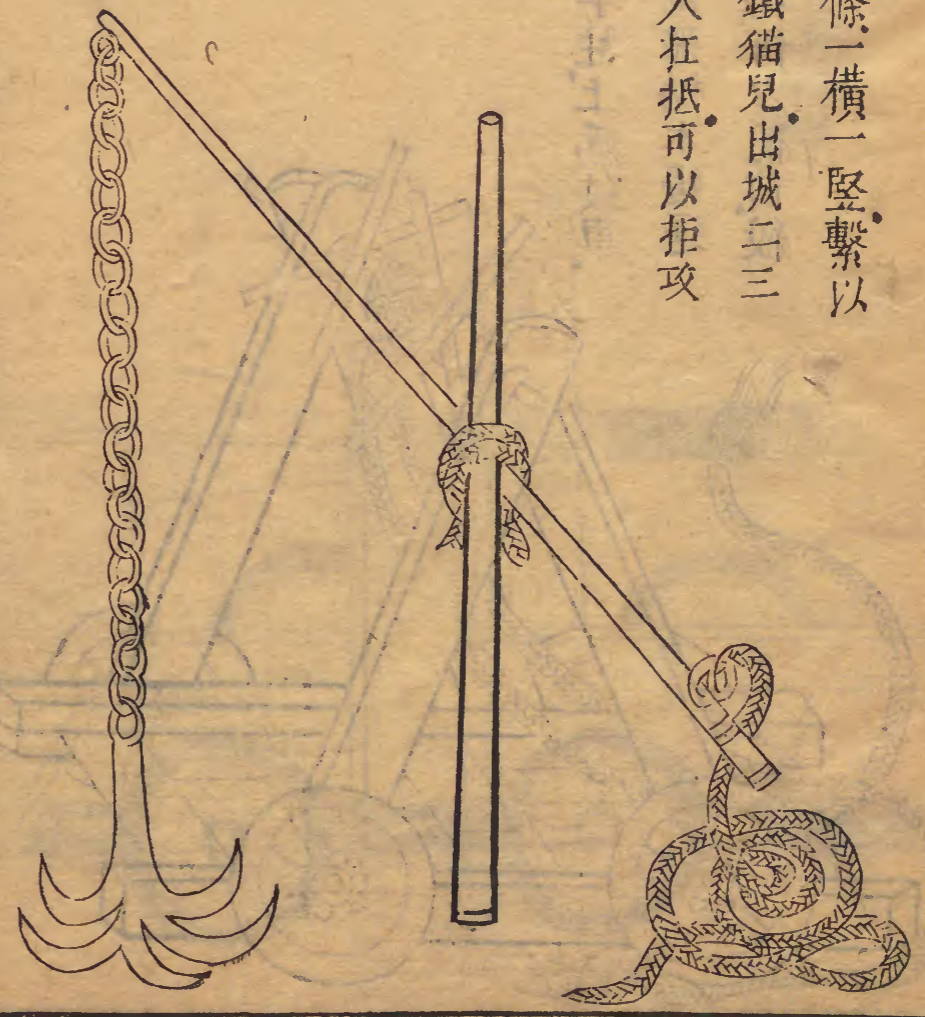 條一橫一竪繫以
鐵猫兒出城二三
人扛抵可以拒攻